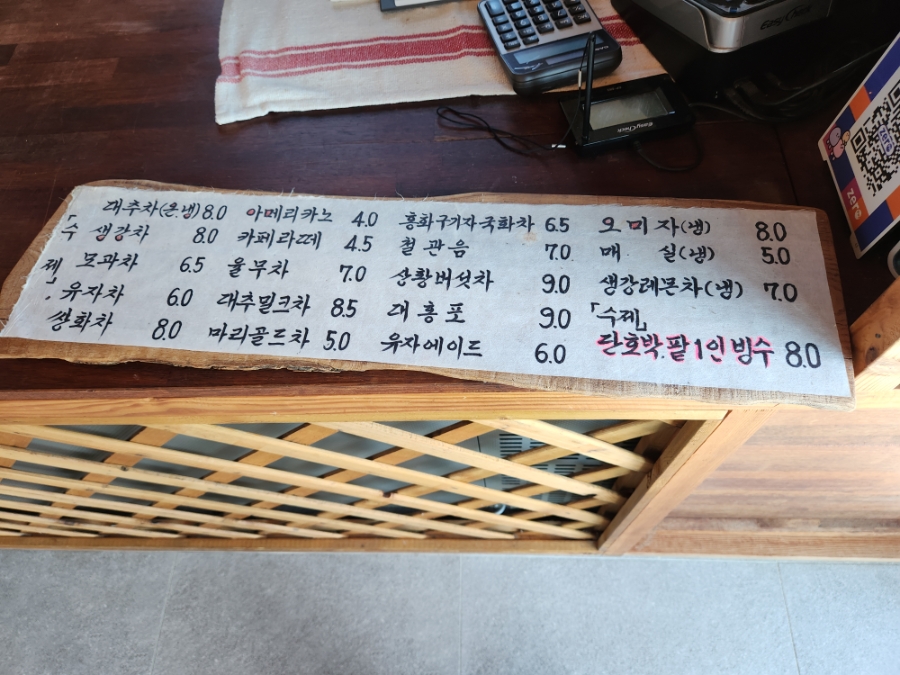 「수제」
대추차(온,냉) 8.0
생강차 8.0
모과차 6.5
유자차 6.0
쌍화차 8.0
아메리카노 4.0
카페라떼 4.5
율무차 7.0
대추밀크차 8.5
마리골드차 5.0
홍화구기자국화차 6.5
철관음 7.0
상황버섯차 9.0
대홍포 9.0
유자에이드 6.0
오미자(냉) 8.0
매실(냉) 5.0
생강레몬차(냉) 7.0
「수제」
단호박팥1인빙수 8.0
EasyCheck
EasyCheck
zero